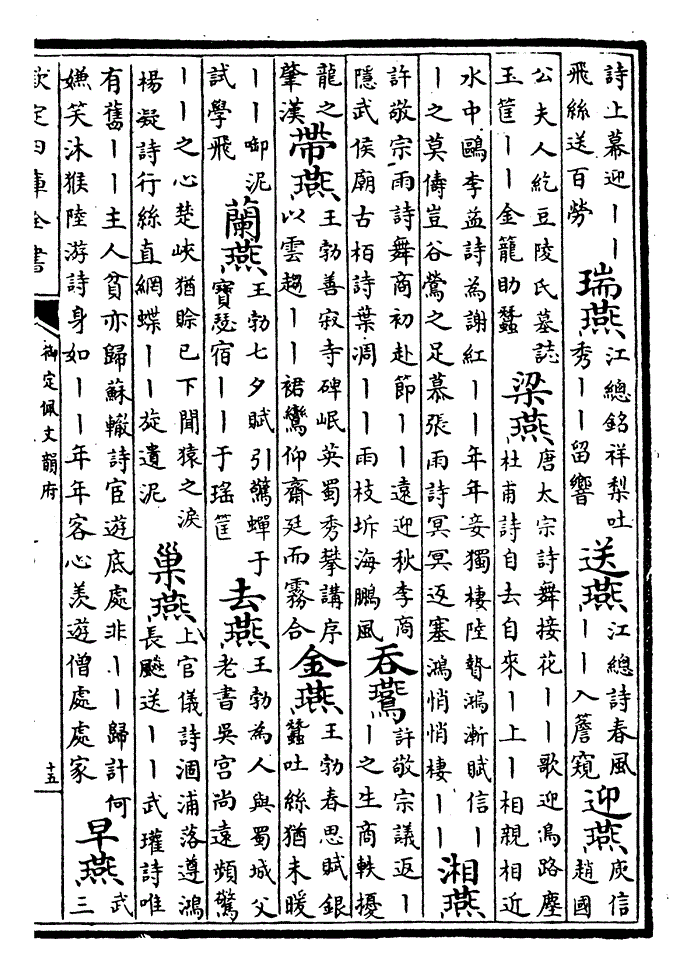 詩上幕迎丨丨
飛絲送百勞
瑞燕
江總銘祥梨吐
秀丨丨留響
送燕
江總詩春風
丨丨入簷窺
迎燕
庾信
趙國
公夫人紇豆陵氏墓誌
玉筐丨丨金籠助蠶
梁燕
唐太宗詩舞接花丨丨歌迎鳥路塵
杜甫詩自去自來丨上丨相親相近
水中鷗李益詩為謝紅丨丨年年妾獨棲陸贄鴻漸賦信丨
丨之莫儔豈谷鶯之足慕張雨詩冥冥返塞鴻悄悄棲丨丨
湘燕
許敬宗雨詩舞商初赴節丨丨遠迎秋李商
隱武侯廟古栢詩葉凋丨丨雨枝坼海鵬風
吞鷰
許敬宗議返丨
丨之生商軼擾
龍之
肇漢
帶燕
王勃善寂寺碑岷英蜀秀攀講序
以雲趨丨丨裙鸞仰齋廷而霧合
金燕
王勃春思賦銀
蠶吐絲猶未暖
丨丨啣泥
試學飛
蘭燕
王勃七夕賦引鴛蟬于
寶瑟宿丨丨于瑤筐
去燕
王勃為人與蜀城父
老書吳宮尚遠頻驚
丨丨之心楚峽猶賒已下聞猿之淚
楊凝詩行絲直網蝶丨丨旋遺泥
巢燕
上官儀詩涸浦落遵鴻
長飈送丨丨武瓘詩唯
有舊丨丨主人貧亦歸蘇轍詩宦遊底處非丨丨歸計何
嫌笑沐猴陸游詩身如丨丨年年客心羨遊僧處處家
早燕
武
三
欽定四庫全書
御定佩文韻府
十五